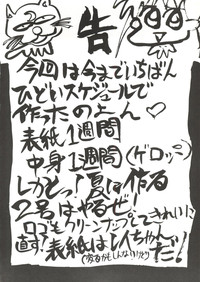 告
今回は今までいちばん
ひどいスケジュールで
作ったのよん♡
表紙1週間
中身1週間(ゲロッ)
しかとっ!夏は作る
2号はやるぜ!
ロゴもクリーンナップしてきれいに
直す!表紙はしんちゃんだ!